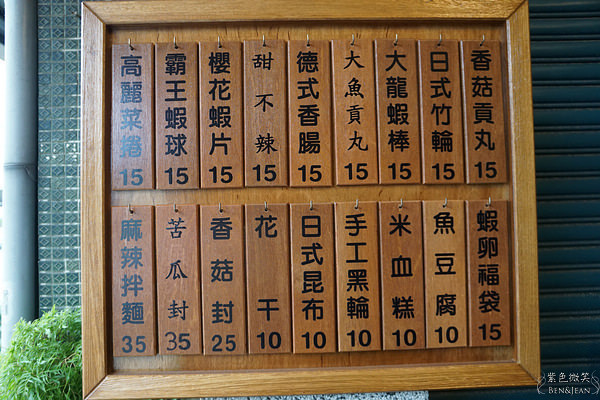 香菇貢丸 15
日式竹輪 15
大龍蝦棒 15
大魚貢丸 15
德式香腸 15
甜不辣 15
櫻花蝦片 15
霸王蝦球 15
高麗菜捲 15
蝦卵福袋 15
魚豆腐 10
米血糕 10
手工黑輪 10
日式昆布 10
花干 10
香菇封 25
苦瓜封 35
麻辣拌麵 35
紫色微笑
BEN&JEAN